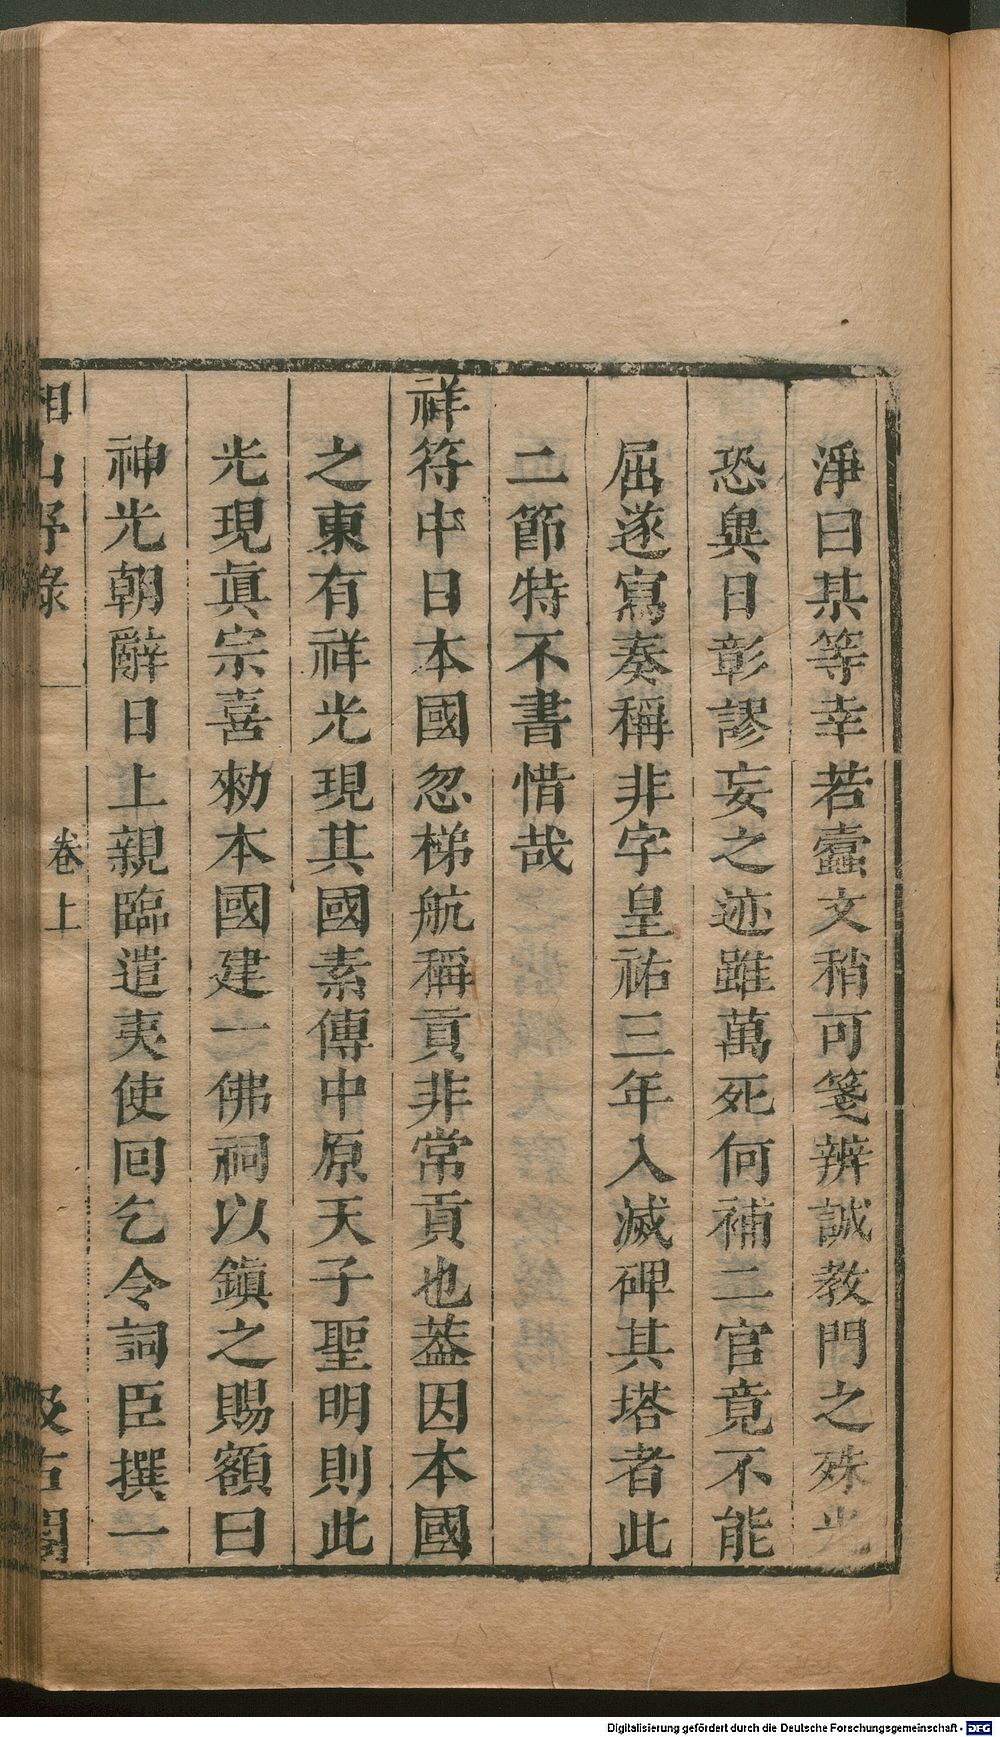 淨曰某等幸若蠧文稍可箋辨誠教門之殊光
恐異日彰謬妄之迹雖萬死何補二官竟不能
屈遂寫奏稱非字皇祐三年入滅碑其塔者此
二節特不書惜哉
祥符中日本國忽梯航稱貢非常貢也葢因本國
之東有祥光現其國素傳中原天子聖明則此
光現眞宗喜勑本國建一佛祠以鎭之賜額曰
神光朝辭日上親臨遣夷使回乞令詞臣撰一
相山野錄 卷上 汲古閣
Digitalisierung gefördert durch die Deutsche Forschungsgemeinschaft - DFG